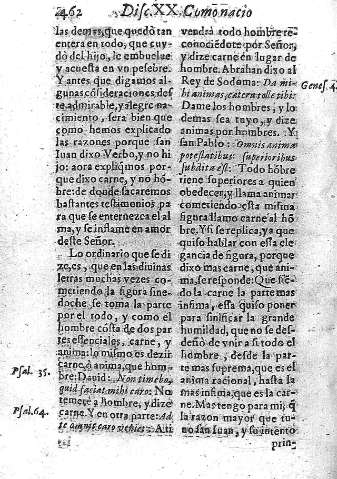 462 Disc. XX. Como nacio
las demas, que quedò tan
entera en todo, que cuy-
dò del hijo, le embuelue
y acuesta en vn pesebre.
Y antes que digamos al-
gunas cõsideraciones des-
te admirable, y alegre na-
cimiento, serà bien que
como hemos explicado
las razones porque san
Iuan dixo Verbo, y no hi-
jo: aora expliqmos por-
que dixo carne, y no hõ-
bre: de donde sacaremos
bastantes testimonios pa-
ra que se enternezca el al
ma, y se inflame en amor
deste Señor.
Lo ordinario que se di
ze, es, que en las diuinas
letras muchas vezes co-
metiendo la figura sine-
doche, se toma la parte
por el todo, y como el
hombre cõsta de dos par
tes essenciales, carne, y
anima: lo mismo es dezir
carne, ò anima, que hom-
Psal. 35.
bre: Dauid: Non timebo,
quid faciat mihi caro: No
temerè a hombre, y dize
Psal. 64.
carne. Y en otra parte: Ad
te omnis caro veniet: A ti
vendrà todo hombre re-
conociẽdote por Señor,
y dize carne en lugar de
hombre. Abrahan dixo al
Rey de Sodoma: Da mi-
Genes.
hi animas, cætera tolle tibi:
Dame los hombres, y lo
demas sea tuyo, y dize
animas por hombres. Y
san Pablo: Omnis anima
potestatibus superioribus
subdita est: Todo hõbre
tiene superiores a quien
obedecer, y llama anima:
cometiendo esta misma
figura llamo carne al hõ
bre. Y si se replica, ya que
quiso hablar con essa ele
gancia de figura, porque
dixo mas carne, que ani-
ma, se responde: Que siẽ-
do la carne la parte mas
infima, essa quiso poner
para sinificar la grande
humildad, que no se des-
deñò de vnir a si todo el
hombre, desde la par-
te mas suprema, que es el
anima racional, hasta la
mas infima, que es la car-
ne. Mas tengo para mi, q̃
la razon mayor que tu-
uo san Iuan, y su intento
prin-